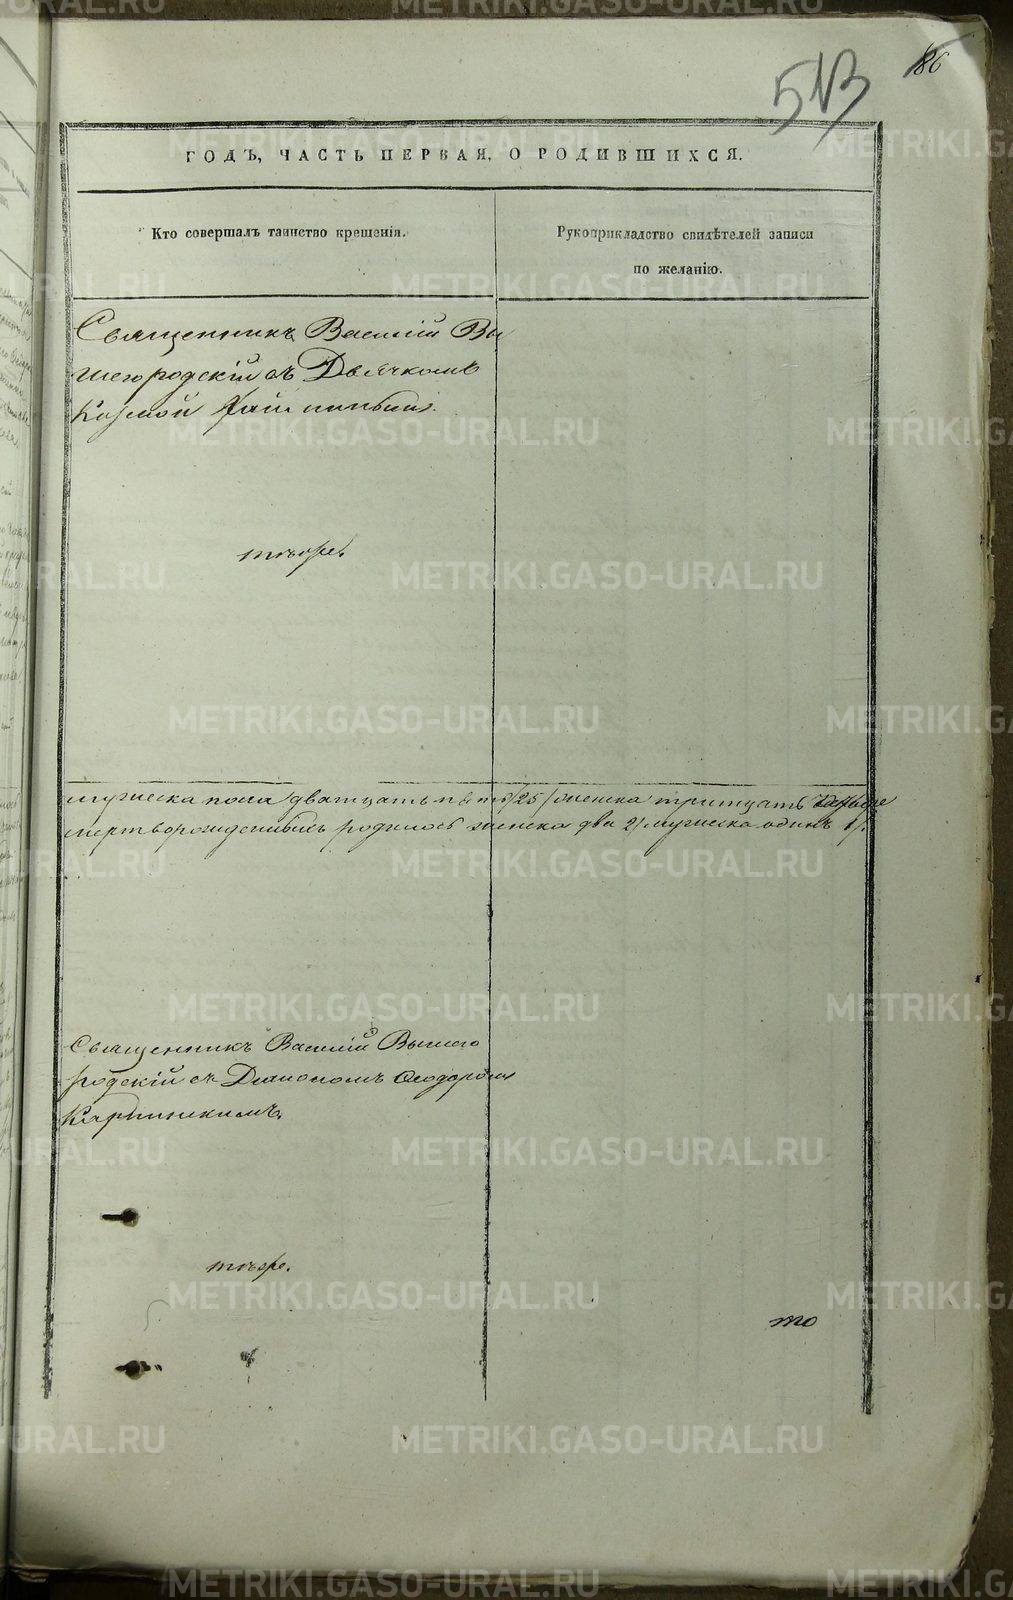 86
513
ГОДЪ, ЧАСТЬ ПЕРВАЯ, О РОДИВШИХСЯ.
Кто совершалъ таинство крещенія.
Рукоприкладство свидѣтелей записи
по желанію.
Священникъ Василій Вы
шегородскій съ Дьячкомъ
Козмой
тѣже.
мужеска пола дватцать пять /25/ женска тритцать
мертворожденныхъ родилось женска два 2/ мужеска одинъ 1/.
Священникъ Василій Вышего
родскій съ Діакономъ Ѳеодоромъ
Карпинскимъ.
тѣже.
то
METRIKI.GASO-URAL.RU